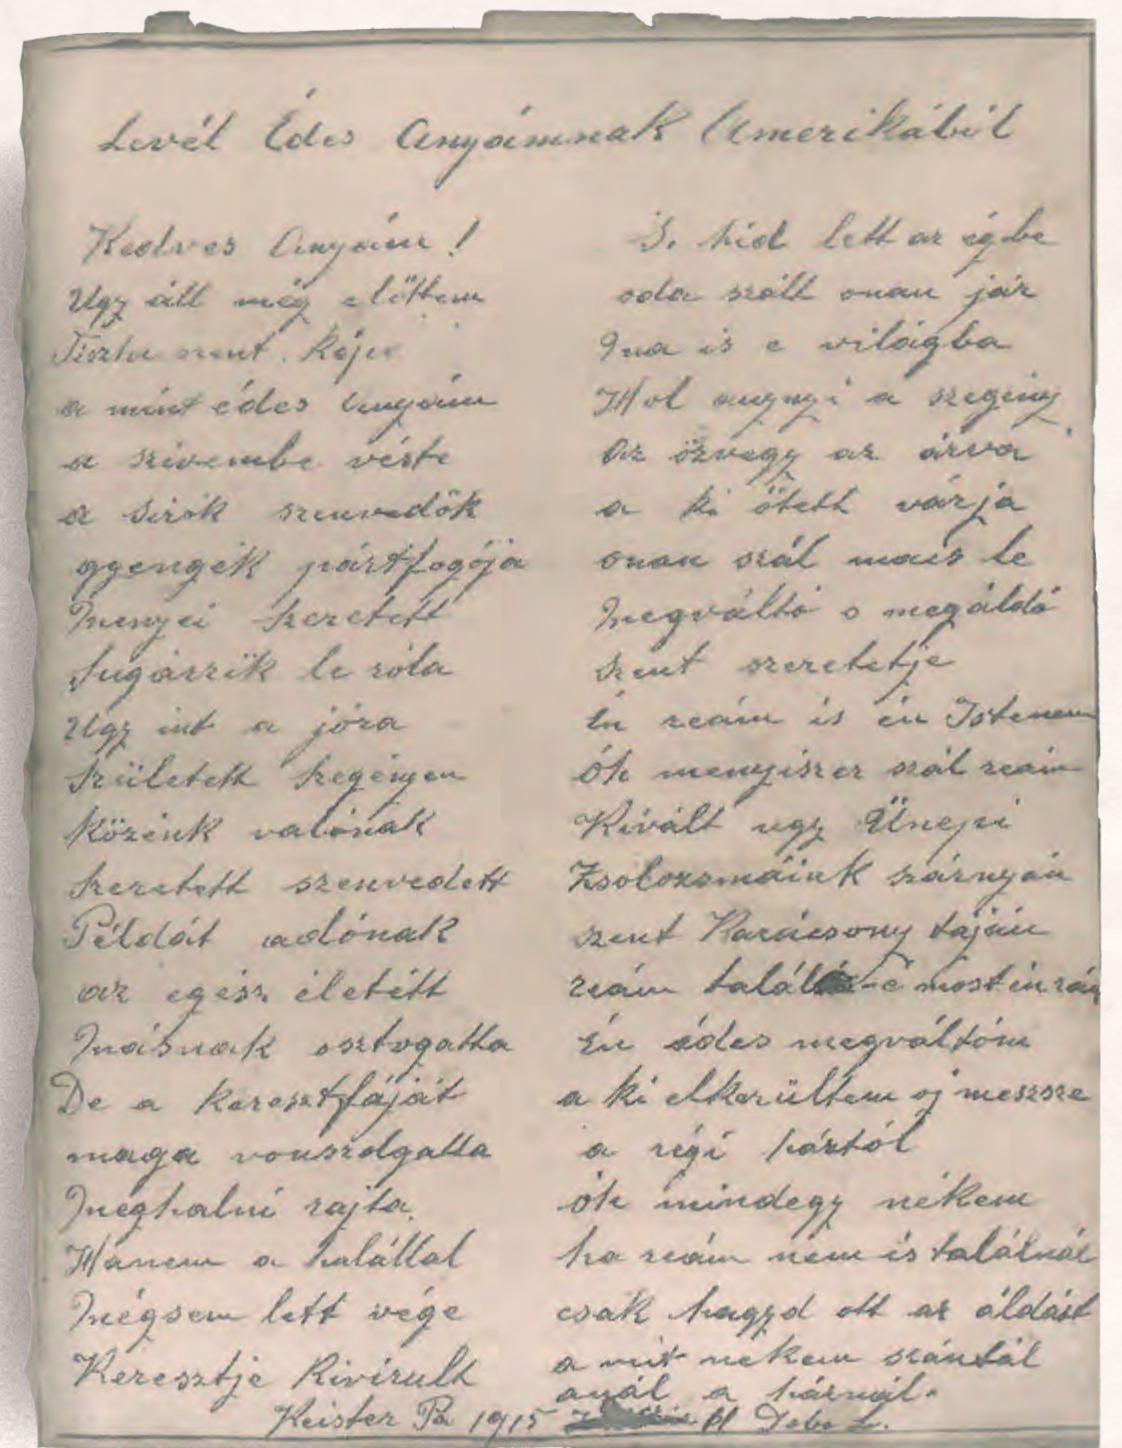 Levél Édes Anyámnak Amerikából
Kedves Anyám!
Ugy áll még előttem
Tiszta szent képe
a mint édes Anyám
a szivembe véste
a sirók szenvedők
gyengék pártfogója
Menyei Szeretett
Sugárzik le róla
Ugy int a jóra
Született Szegényen
Közénk valónak
Szeretett szenvedett
Példát adónak
az egész életétt
Másnak osztogatta
De a keresztfáját
maga vonszolgatta
Meghalni rajta.
Hanem a halállal
Mégsem lett vége
Keresztje Kivirult
S. hid lett az égbe
oda szált onan jár
Ma is e világba
Hol anynyi a szegény
az özvegy az árva
a ki őtett várja
onan szál mais le
Megváltó s megáldó
Szent szeretetje
Én reám is én Istenem
óh menyiszer szál reám
Kivált ugy Ünepi
Zsolozsmáink szárnyán
szent Karácsony táján
reám talál -é most én rám
Én édes megváltóm
a ki elkerültem oj meszsze
a régi háztól
óh mindegy nékem
ha reám nem is találnál
csak hagyd ott az áldást
a mit nekem szántál
anál a háznál.
Keister Pa 1915 Dobo L.